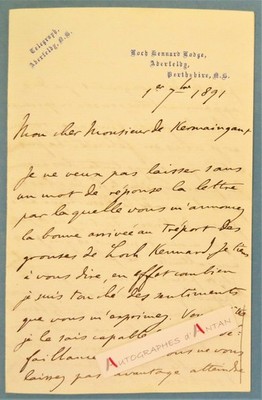 Telegraph,
Aberfeldy, N.B.
Loch Kennard Lodge,
Aberfeldy,
Perthshire, N.B.
1er 7bre 1891
Mon cher Monsieur de Kermaingant,
Je ne veux pas laisser sans
un mot de réponse la lettre
par laquelle vous m'annoncez
la bonne arrivée au Tréport des
grouses de Loch Kennard. Je tiens
à vous dire, en effet combien
je suis touché des sentiments
que vous m'exprimez.
je le sais capable
faillance vous ne vous
laissez pas davantage attendre
AUTOGRAPHES D'ANTAN